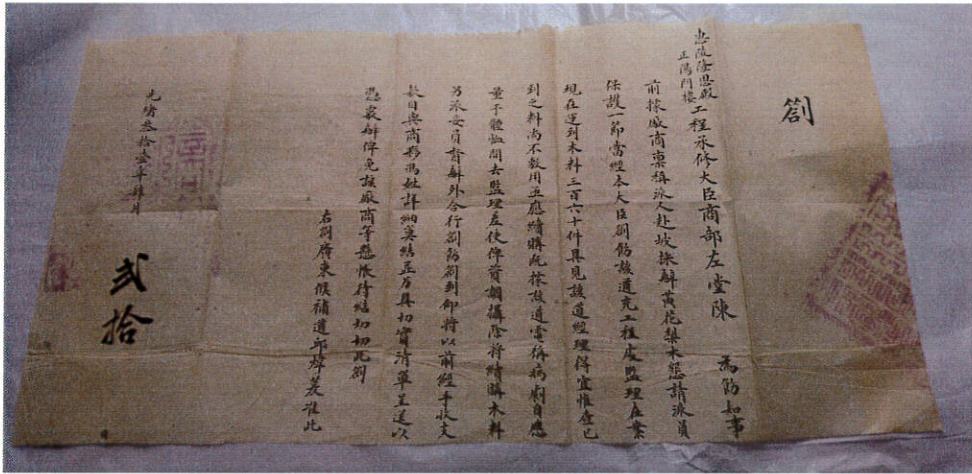 劄
惠陵隆恩殿
正陽門樓
工程承修大臣商部左堂陳 為飭知事
前據廠商稟稱派人赴坡採辦黃花梨木懇請派員
保護一節當經本大臣劄飭該道充工程處監理在案
現在運到木料三百六十件具見該道經理得宜惟查已
到之料尚不敷用並應續購既據該道電稱病劇自應
量予體恤開去監理差使俾資調攝除將續購木料
另派委員督辦外合行劄飭劄到仰將以前經手收支
款目與商夥馮姓詳細算結並另具切實清單呈送以
憑覈辦俾免該廠商等懸帳待結切切此劄
右劄廣東候補道邱煒萲准此
光緒叁拾壹年肆月
貳拾
日